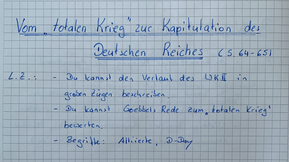 Vom „totalen Krieg" zur Kapitulation des
Deutschen Reiches (S. 64-65)
L.Z.: - Du kannst den Verlauf des WKII in
groben Zügen beschreiben.
- Du kannst Goebbels Rede zum „totalen Krieg"
bewerten.
- Begriffe: Alliierte, D-Day